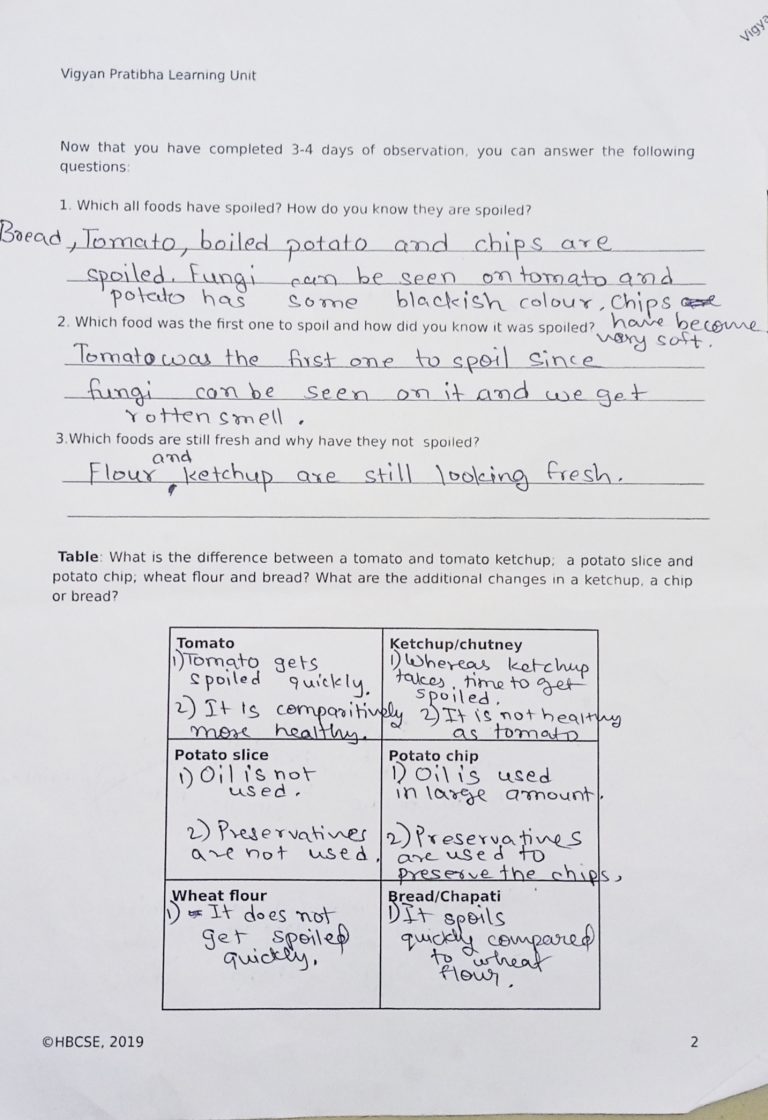 Vigya
Vigyan Pratibha Learning Unit
Now that you have completed 3-4 days of observation, you can answer the following
questions:
1. Which all foods have spoiled? How do you know they are spoiled?
Bread, Tomato, boiled potato and chips are
spoiled. Fungi can be seen on tomato and
potato has some blackish colour, Chips
have become
very soft.
2. Which food was the first one to spoil and how did you know it was spoiled?
Tomato was the first one to spoil since
fungi can be seen on it and we get
rotten smell.
3.Which foods are still fresh and why have they not spoiled?
Flour and ketchup are still looking fresh.
Table: What is the difference between a tomato and tomato ketchup; a potato slice and
potato chip; wheat flour and bread? What are the additional changes in a ketchup, a chip
or bread?
Tomato
1) Tomato gets
spoiled quickly.
2) It is comparitively
more healthy.
Ketchup/chutney
1) Whereas ketchup
takes time to get
spoiled.
2) It is not healthy
as tomato
Potato slice
1) Oil is not
used.
2) Preservatines
are not used.
Potato chip
1) Oil is used
in large amount.
2) Preservatines
are used to
preserve the chips,
Wheat flour
1) It does not
get spoiled
quickly.
Bread/Chapati
1) It spoils
quickly compared
to wheat
flour.
©HBCSE, 2019
2